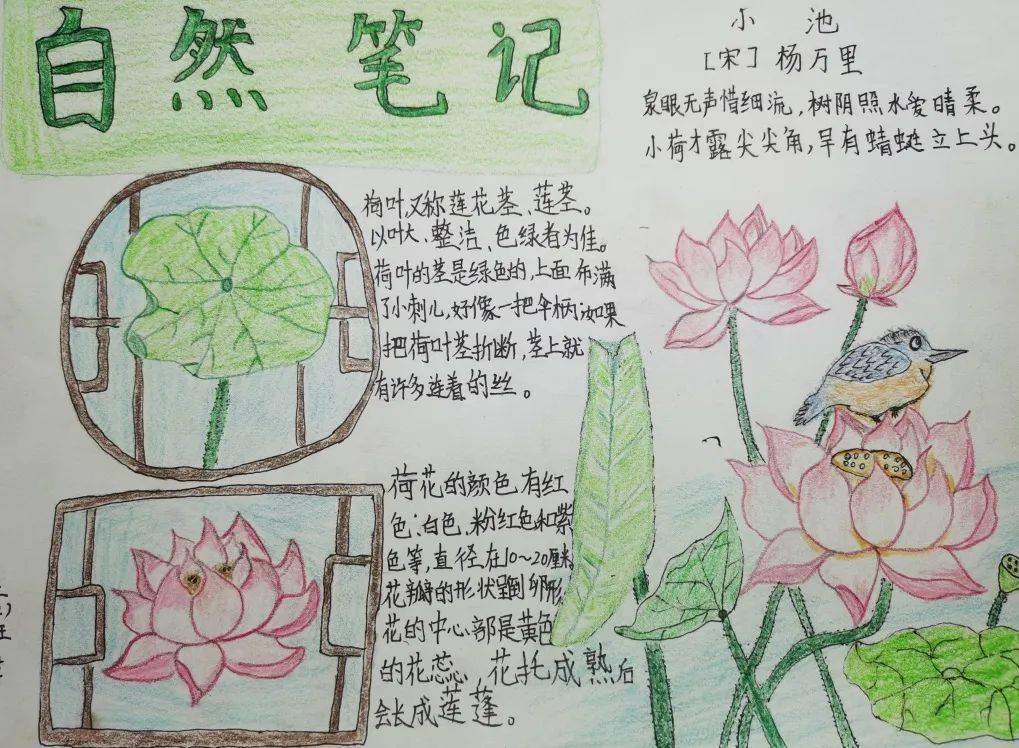 自然笔记
小池
[宋] 杨万里
泉眼无声惜细流，树阴照水爱晴柔。
小荷才露尖尖角，早有蜻蜓立上头。
荷叶，又称莲花茎、莲茎。
以叶大、整洁、色绿者为佳。
荷叶的茎是绿色的，上面布满
了小刺儿，好像一把伞柄，如果
把荷叶茎折断，茎上就
有许多连着的丝。
荷花的颜色有红
色、白色、粉红色和紫
色等，直径在10～20厘米
花瓣的形状呈倒卵形
花的中心部是黄色
的花蕊，花托成熟后
会长成莲蓬。